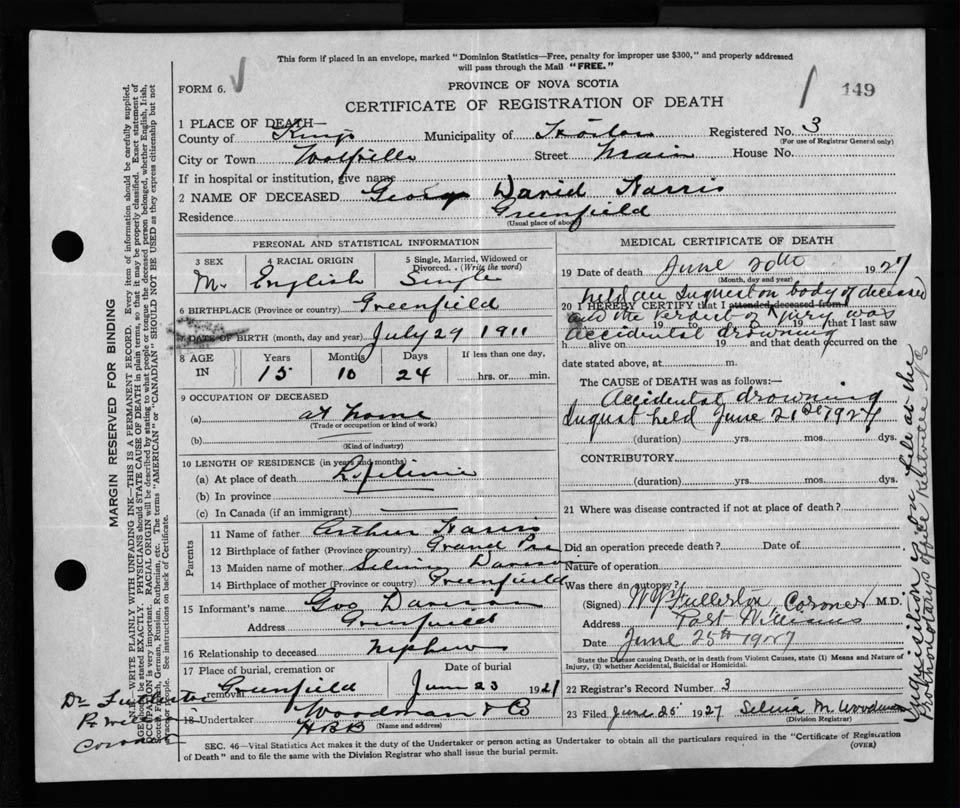 This form if placed in an envelope, marked "Dominion Statistics—Free, penalty for improper use $300," and properly addressed
will pass through the Mail "FREE."
FORM 6. √
PROVINCE OF NOVA SCOTIA
/ 149
CERTIFICATE OF REGISTRATION OF DEATH
1 PLACE OF DEATH—
County of Kings Municipality of Horton Registered No. 3
(For use of Registrar General only)
City or Town Wolfville Street Main House No.
If in hospital or institution, give name
2 NAME OF DECEASED George David Harris
Residence Greenfield
(Usual place of abode)
PERSONAL AND STATISTICAL INFORMATION
3 SEX 4 RACIAL ORIGIN 5 Single, Married, Widowed or
Divorced. . (Write the word)
M. English Single
6 BIRTHPLACE (Province or country) Greenfield
7 DATE OF BIRTH (month, day and year) July 29 1911
8 AGE IN Years Months Days If less than one day,
15 10 24 hrs. or min.
9 OCCUPATION OF DECEASED
(a) at home
(Trade or occupation or kind of work)
(b)
(Kind of industry)
10 LENGTH OF RESIDENCE (in years and months)
(a) At place of death Lifetime
(b) In province
(c) In Canada (if an immigrant)
Parents
11 Name of father Arthur Harris
12 Birthplace of father (Province or country) Grand Pre
13 Maiden name of mother Davison
14 Birthplace of mother (Province or country) Greenfield
15 Informant's name Geo Davison
Address Greenfield
16 Relationship to deceased Nephew
17 Place of burial, cremation or removal Date of burial
Greenfield June 23 192
18 Undertaker Woodman & Co
H.B.B (Name and address)
MEDICAL CERTIFICATE OF DEATH
19 Date of death June 20th 1927
(Month, day and year)
held an Inquest on body of deceased
20 I HEREBY CERTIFY that I attended deceased from
and the verdict of jury was
19 to 19 that I last saw
Accidental drowning
h alive on 19 and that death occurred on the
date stated above, at m.
The CAUSE OF DEATH was as follows:—
Accidental drowning
Inquest held June 21st 192
(duration) yrs. mos. dys.
CONTRIBUTORY
(duration) yrs. mos. dys.
21 Where was disease contracted if not at place of death?
Did an operation precede death? Date of
Nature of operation
Was there an autopsy?
(Signed) W Fullerton Coroner M.D.
Address Port Williams
Date June 25th 1927
State the Disease causing Death, or in death from Violent Causes, state (1) Means and Nature of
Injury, (2) whether Accidental, Suicidal or Homicidal.
22 Registrar's Record Number 3
23 Filed June 25 1927 Selina M. Woodman
(Division Registrar)
SEC. 46—Vital Statistics Act makes it the duty of the Undertaker or person acting as Undertaker to obtain all the particulars required in the "Certificate of Registration
of Death" and to file the same with the Division Registrar who shall issue the burial permit. (OVER)
MARGIN RESERVED FOR BINDING
N.B.—WRITE PLAINLY WITH UNFADING INK—THIS IS A PERMANENT RECORD. Every item of information should be carefully supplied.
AGE should be stated EXACTLY. PHYSICIANS should STATE CAUSE OF DEATH in plain terms, so that it may be properly classified. Exact statement of
OCCUPATION is very important. RACIAL ORIGIN will be described by stating to what people or tongue the deceased person belonged, whether English, Irish,
Scotch, French, German, Russian, Ruthenian, etc. The terms "AMERICAN" or "CANADIAN" SHOULD NOT BE USED as they express citizenship but not
people. See instructions on back of Certificate.
Dr Fullerton
Coroner
Inquisition is on file at the
Prothonotarys office Kentville N.S.